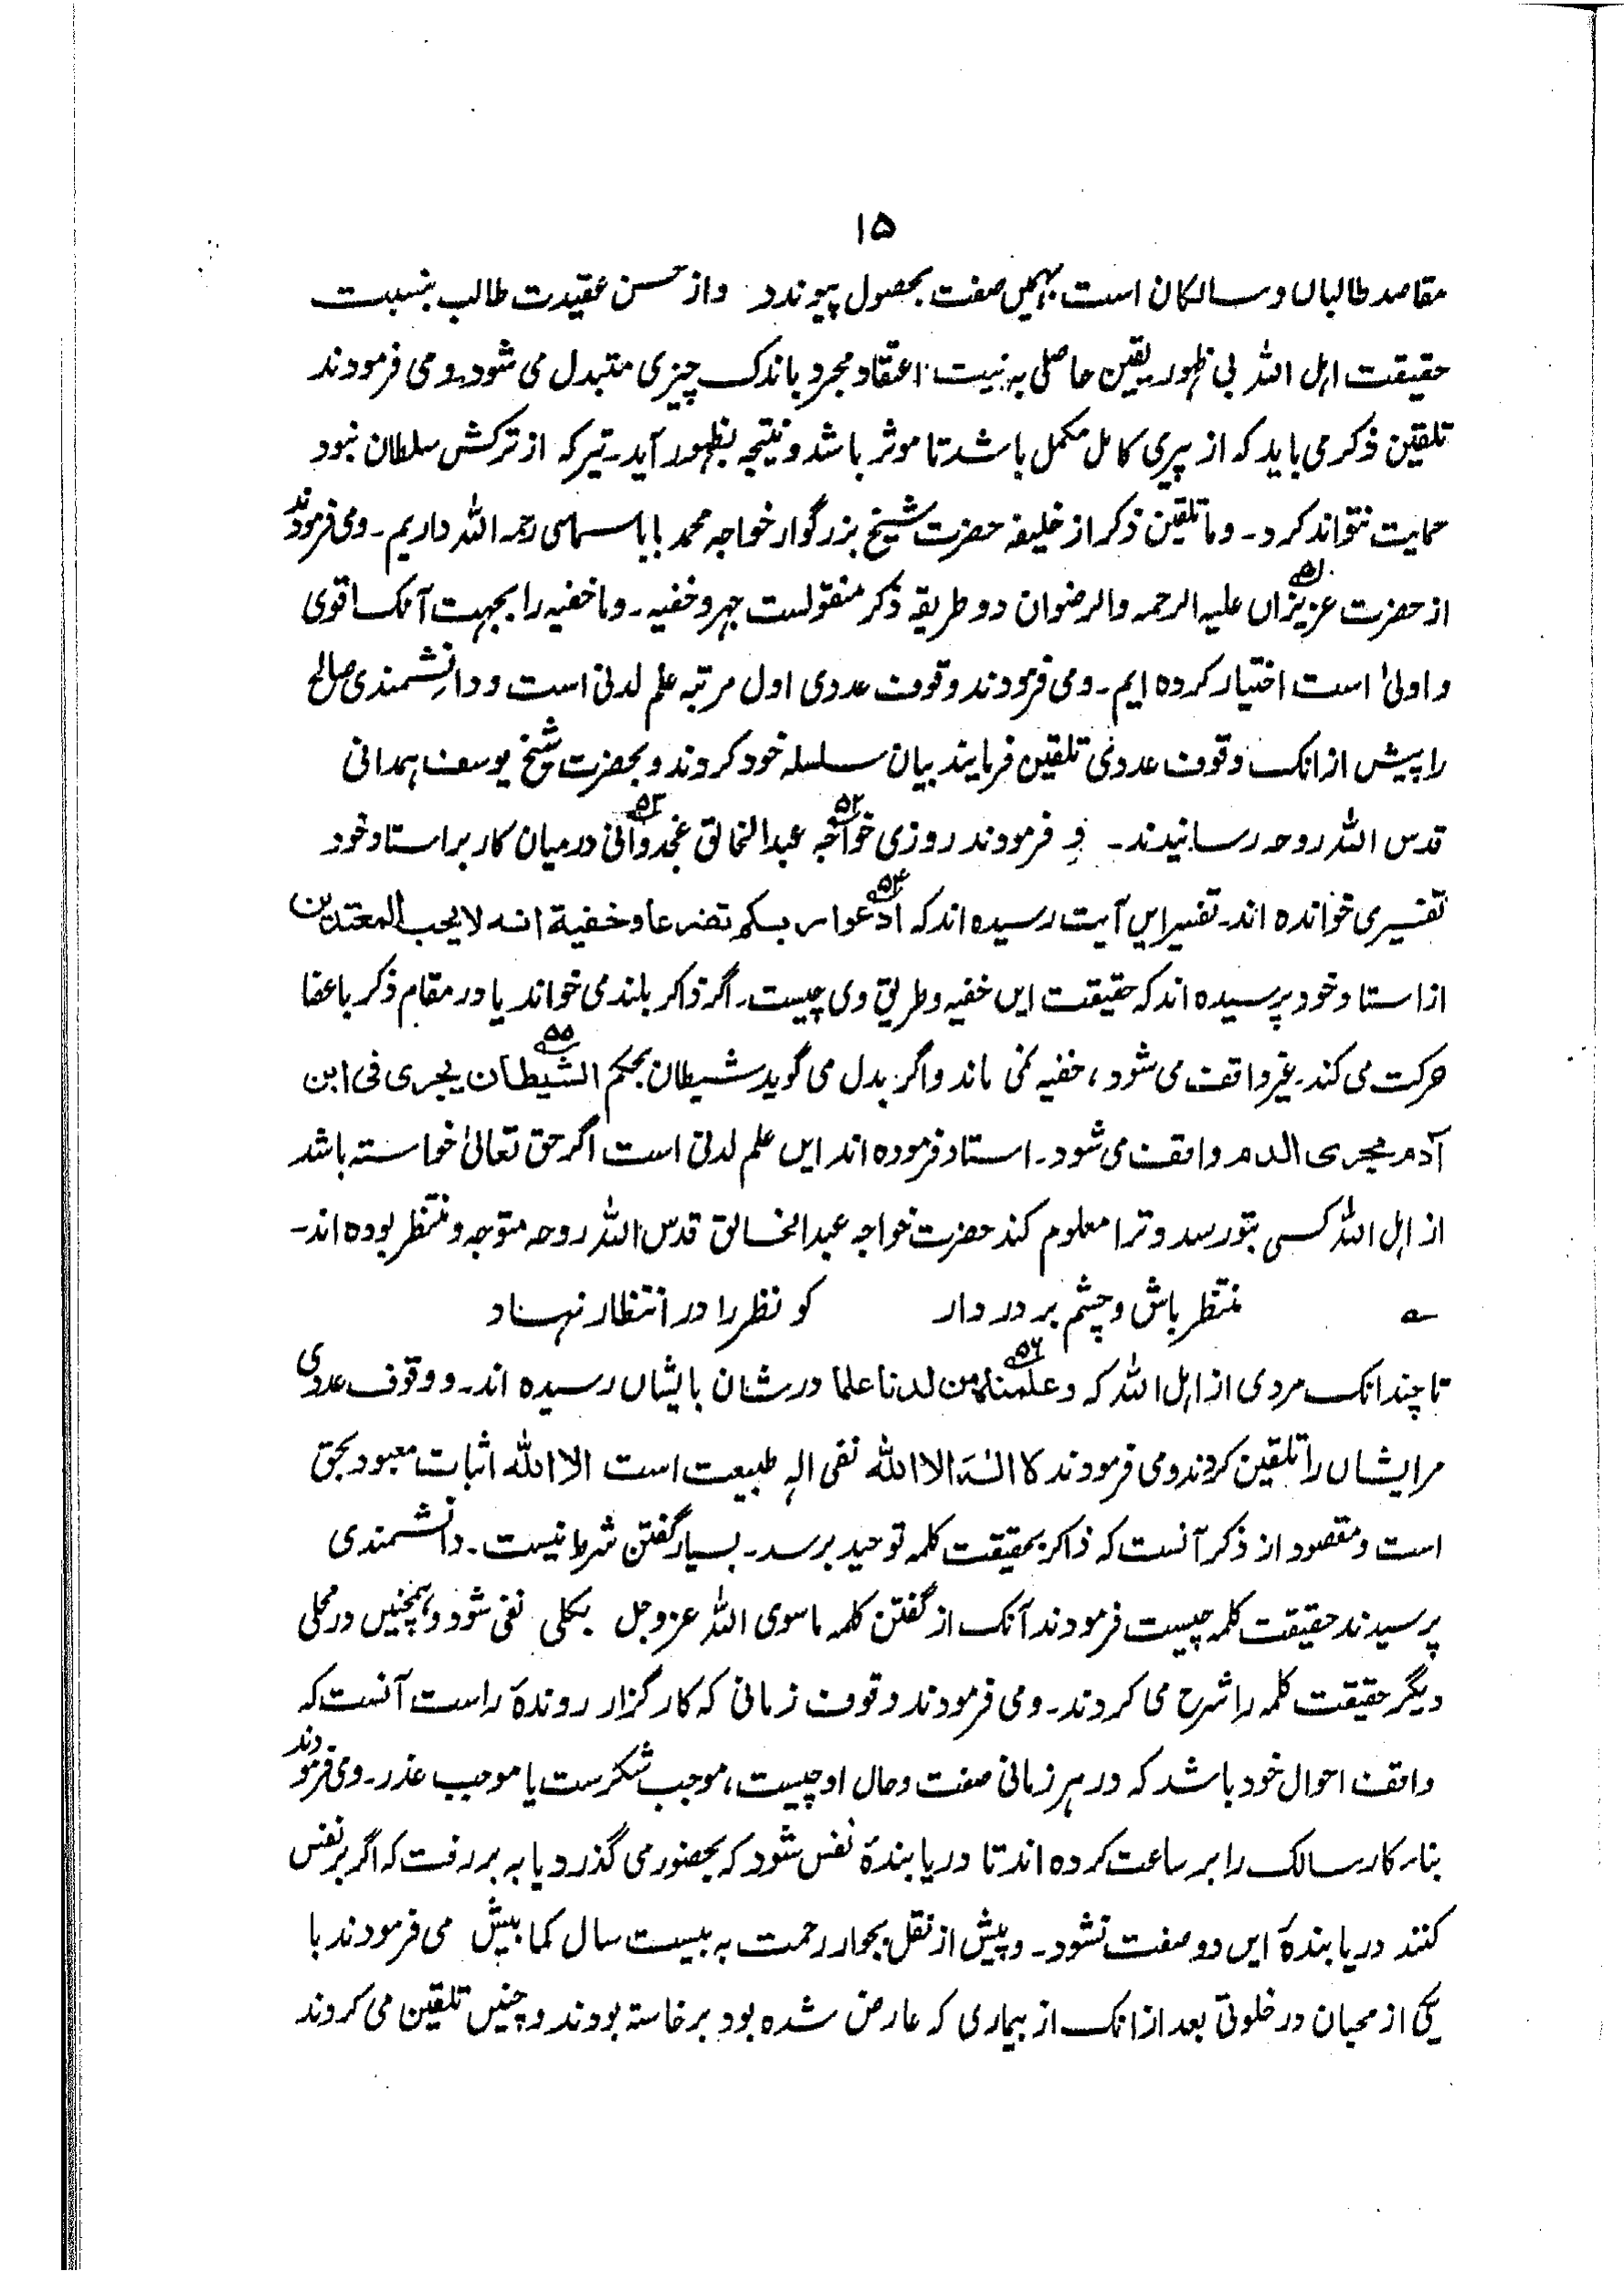 ۱۵
مقاصد طالباں و سالکان است بہمیں صفت بحصول پیوندد و از حسن عقیدت طالب بنسبت
حقیقت اہل اللہ بی ظہور یقین حاصلی بہ نیت اعتقاد مجرد باندک چیزی متبدل می شود۔ و می فرمودند
تلقین ذکر می باید کہ از پیری کامل مکمل باشد تا موثر باشد و نتیجہ بظہور آید۔ تیر کہ از ترکش سلطان نبود
حمایت نتواند کرد۔ و ما تلقین ذکر از خلیفہ حضرت شیخ بزرگوار خواجہ محمد بابا سماسی رحمہ اللہ داریم۔ و می فرمودند
از حضرت عزیزاں ۵۱ علیہ الرحمہ والرضوان دو طریقہ ذکر منقولست جہر و خفیہ۔ و ما خفیہ را بجہت آنک اقوی
و اولیٰ است اختیار کردہ ایم۔ و می فرمودند وقوف عددی اول مرتبہ علم لدنی است و دانشمندی صالح
را پیش از انک وقوف عددی تلقین فرمایند بیان سلسلہ خود کردند و بحضرت شیخ یوسف ہمدانی
قدس اللہ روحہ رسانیدند۔ و فرمودند روزی خواجہ ۵۲ عبدالخالق غجدوانی ۵۳ درمیان کار بر استاد خود
تفسیری خواندہ اند۔ تفسیر ایں آیت رسیدہ اند کہ ادعوا ۵۴ ربکم تضرعا و خفیة انه لا یحب المعتدین
از استاد خود پرسیدہ اند کہ حقیقت ایں خفیہ و طریق وی چیست۔ اگر ذاکر بلند می خواند یا در مقام ذکر باعضا
حرکت می کند۔ غیر واقف می شود، خفیہ نمی ماند و اگر بدل می گوید شیطان بحکم الشیطان ۵۵ یجری فی ابن
آدم مجری الدم واقف می شود۔ استاد فرمودہ اند ایں علم لدنی است اگر حق تعالیٰ خواستہ باشد
از اہل اللہ کسی بتو رسد و ترا معلوم کند حضرت خواجہ عبدالخالق قدس اللہ روحہ متوجہ و منتظر بودہ اند۔
؎ منتظر باش و چشم بر در دار کو نظر را در انتظار نہاد
تا چندانک مردی از اہل اللہ کہ و علمناہ ۵۶ من لدنا علما در شان بایشاں رسیدہ اند۔ و وقوف عددی
مر ایشاں را تلقین کردند و می فرمودند لا الٰہ الا اللہ نفی الہ طبیعت است الا اللہ اثبات معبود بحق
است و مقصود از ذکر آنست کہ ذاکر بحقیقت کلمہ توحید برسد۔ بسیار گفتن شرط نیست۔ دانشمندی
پرسیدند حقیقت کلمہ چیست فرمودند آنک از گفتن کلمہ ماسوی اللہ عز و جل بکلی نفی شود و ہمچنیں در محلی
دیگر حقیقت کلمہ را شرح می کردند۔ و می فرمودند وقوف زمانی کہ کار گزار روندۂ راست آنست کہ
واقف احوال خود باشد کہ در ہر زمانی صفت و حال او چیست، موجب شکرست یا موجب عذر۔ و می فرمودند
بناء کار سالک را بر ساعت کردہ اند تا دریابندۂ نفس شود کہ بحضور می گذرد یا بہ بر رفت کہ اگر بر نفس
کنند دریابندۂ ایں دو صفت نشود۔ و پیش از نقل بجوار رحمت بہ بیست سال کما بیش می فرمودند با
یکی از محبان در خلوتی بعد از انک از بیماری کہ عارض شدہ بود برخاستہ بودند و چنیں تلقین می کردند